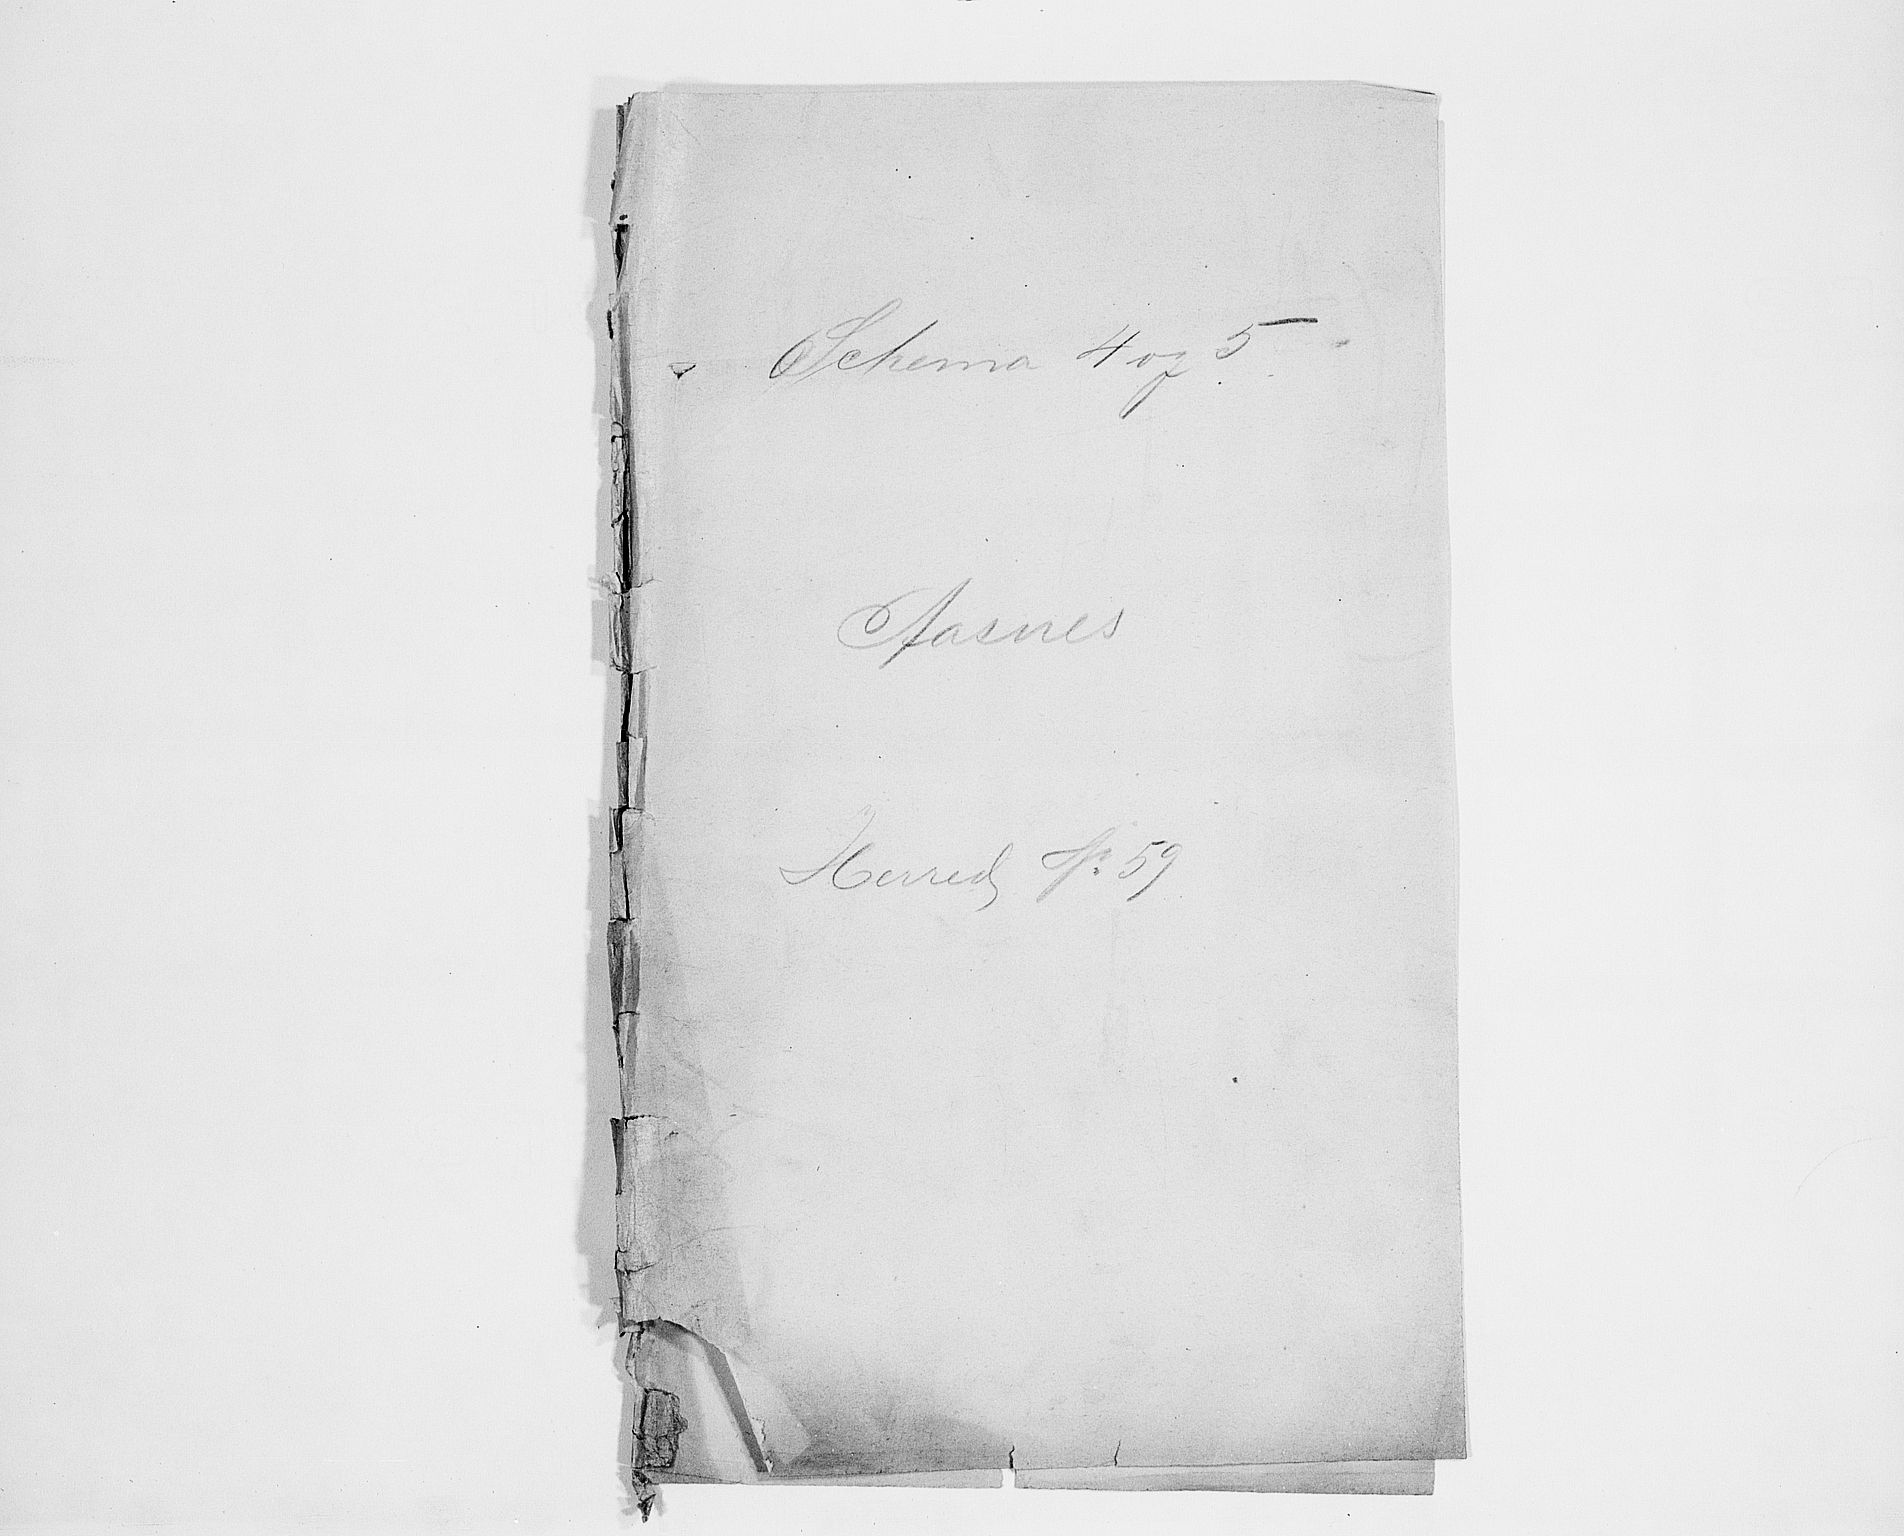 Schema 4 og 5
Aasnes
Herred No. 59